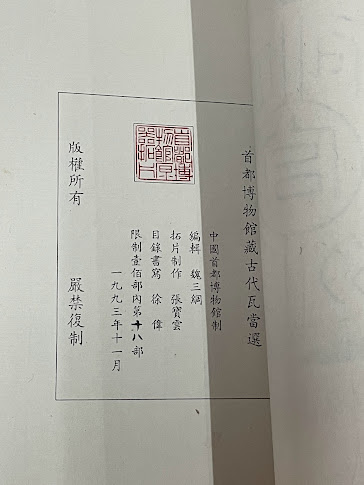 首都博物館藏古代瓦當選
中國首都博物館制
編輯 魏三綱
拓片制作 張寶雲
目錄書寫 徐 偉
限制壹佰部內第十八部
一九九三年十一月
版權所有 嚴禁復制